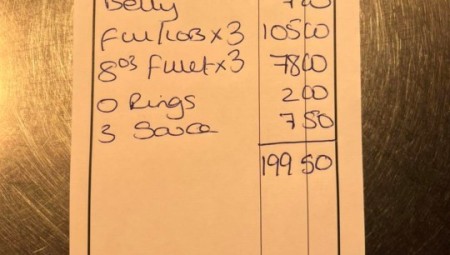 Belly 7 00
/LOB x3 105 00
8oz Fillet x3 78 00
O Rings 2 00
3 Sauce 7 50
199 50